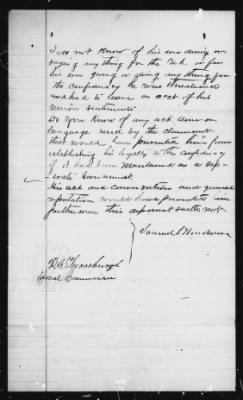 I do not know of his ever doing or
saying anything for the U.S. or for
his ever giving or going any thing for
the confederacy he was threatened
and had to leave on acct of his
union sentiments.
Do you know of any act done or
language used by the claimant
that would have prevented him from
establishing his loyalty to the confederacy
if it had been maintained as a sep-
erate Government.
His act and conversation and general
reputation would have prevented him
further more this deponent saith not
Samuel
Special Commissioner